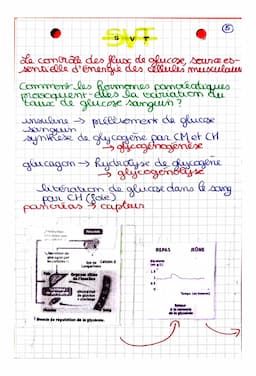 5
SVT
Le contrôle des flux de glucose, source es-
sentielle d'énergie des cellules musculaires
Comment les hormones pancréatiques
provoquent-elles la variation du
taux de glucose sanguin?
insuline → prélèvement de glucose
sanguin
synthèse de glycogène par CM et CH
→ glycogénogénèse
glucagon → hydrolyse de glycogène
→ glycogénolyse
libération de glucose dans le sang
par CH (foie)
pancréas → capteur
REPAS JEÛNE
Retour
à la normale
de la glycémie
Boucle de régulation de la glycémie.